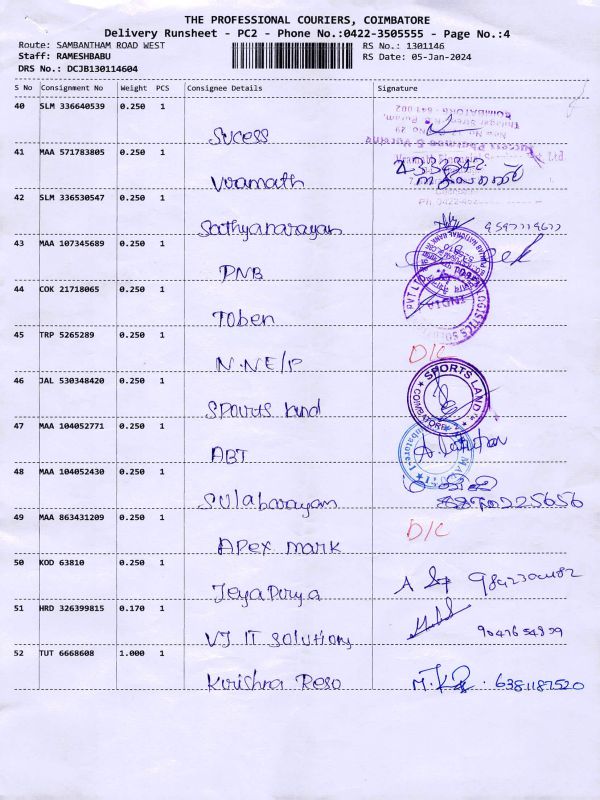 THE PROFESSIONAL COURIERS, COIMBATORE
Delivery Runsheet - PC2 - Phone No.:0422-3505555 - Page No.:4
Route: SAMBANTHAM ROAD WEST
RS No.: 1301146
Staff: RAMESHBABU
RS Date: 05-Jan-2024
DRS No.: DCJB130114604
S No Consignment No Weight PCS Consignee Details Signature
40 SLM 336640539 0.250 1
Sucess
41 MAA 571783805 0.250 1
Viramath
42 SLM 336530547 0.250 1
Sathyanarayan
43 MAA 107345689 0.250 1
PNB
44 COK 21718065 0.250 1
Toben
45 TRP 5265289 0.250 1
N.NE/P D/C
46 JAL 530348420 0.250 1
SPORTS LAND
COIMBATORE - 2
Sports land
47 MAA 104052771 0.250 1
ABT
48 MAA 104052430 0.250 1
Sulabarayam
49 MAA 863431209 0.250 1
Apex mark D/C
50 KOD 63810 0.250 1
Jeyapriya
51 HRD 326399815 0.170 1
VJ IT Solutions
52 TUT 6668608 1.000 1
Krishna Reso 6381187520